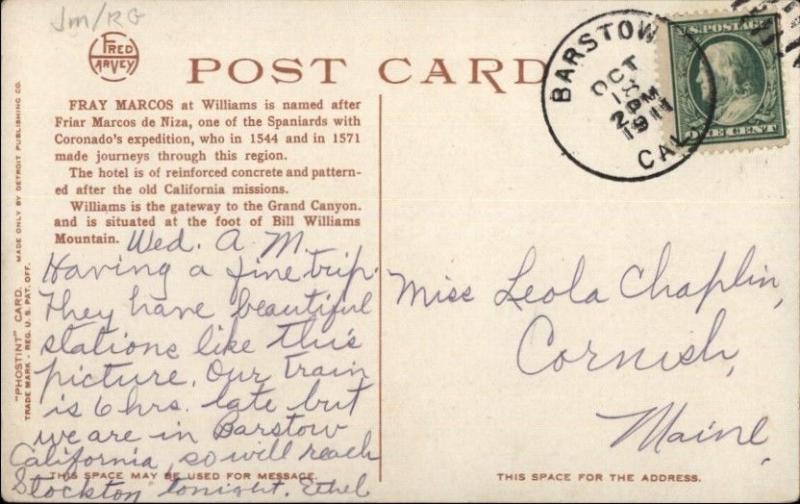 Jm/RG
FRED
HARVEY
POST CARD
BARSTOW
OCT
12
1911
CAL.
U.S. POSTAGE
ONE CENT
FRAY MARCOS at Williams is named after
Friar Marcos de Niza, one of the Spaniards with
Coronado's expedition, who in 1544 and in 1571
made journeys through this region.
The hotel is of reinforced concrete and pattern-
ed after the old California missions.
Williams is the gateway to the Grand Canyon.
and is situated at the foot of Bill Williams
Mountain.
Wed. A.M.
Having a fine trip.
They have beautiful
stations like this
picture. Our train
is 6 hrs. late but
we are in Barstow
California, so will reach
Stockton tonight. Ethel
Miss Leola Chaplin,
Cornish,
Maine,
THIS SPACE MAY BE USED FOR MESSAGE.
THIS SPACE FOR THE ADDRESS.
"PHOSTINT" CARD. MADE ONLY BY DETROIT PUBLISHING CO.
TRADE MARK - REG. U.S. PAT. OFF.